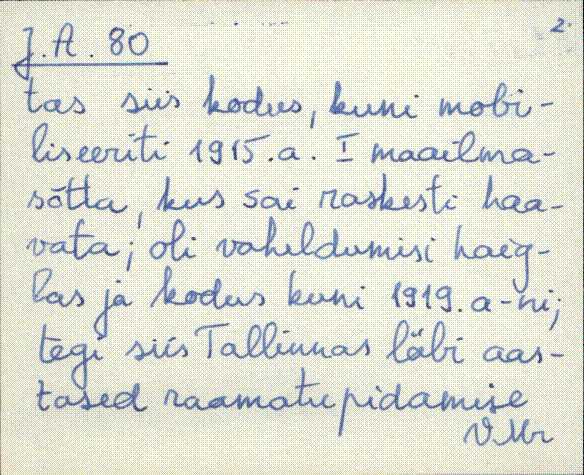 J.A. 80
2.
tas siis kodus, kuni mobi-
liseeriti 1915.a. I maailma-
sõtta, kus sai raskesti haa-
vata; oli vaheldumisi haig-
las ja kodus kuni 1919. a-ni;
tegi siis Tallinnas läbi aas-
tased raamatupidamise